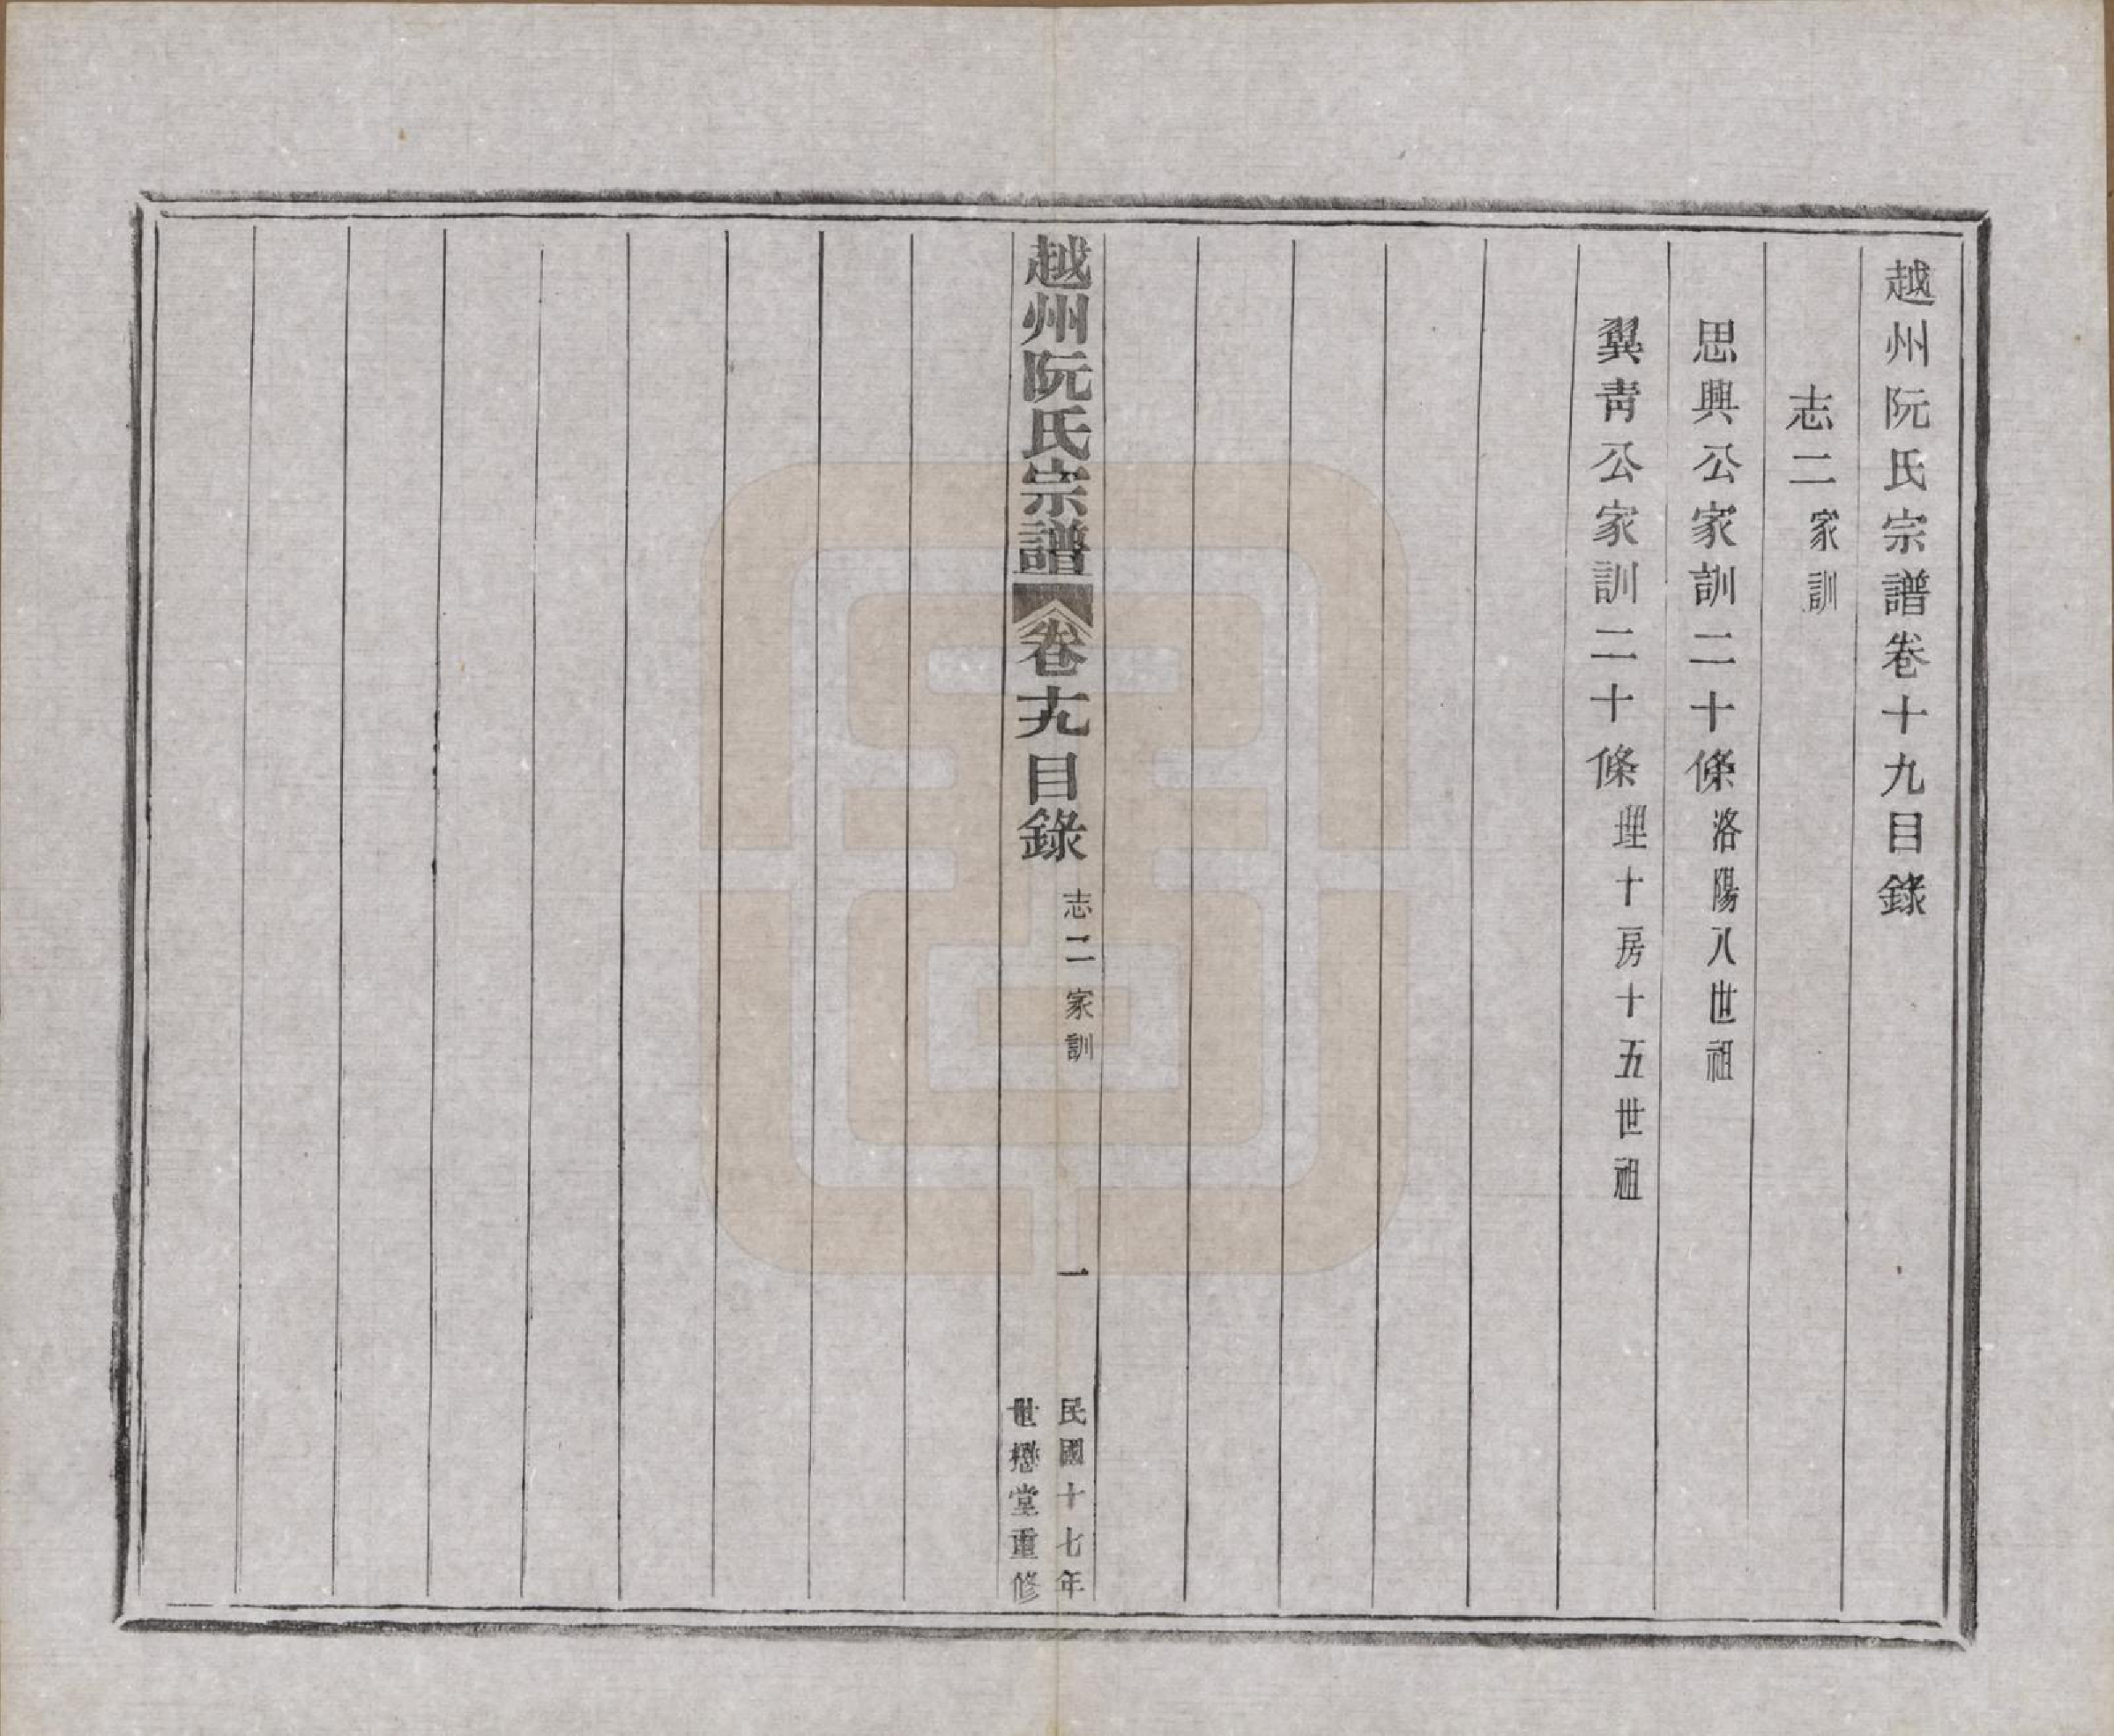 越州阮氏宗譜卷十九目錄
志二家訓
思興公家訓二十條洛陽八世祖
翼靑公家訓二十條理十房十五世祖
越州阮氏宗譜
卷十九目錄
志二家訓
一
民國十七年
世懋堂重修